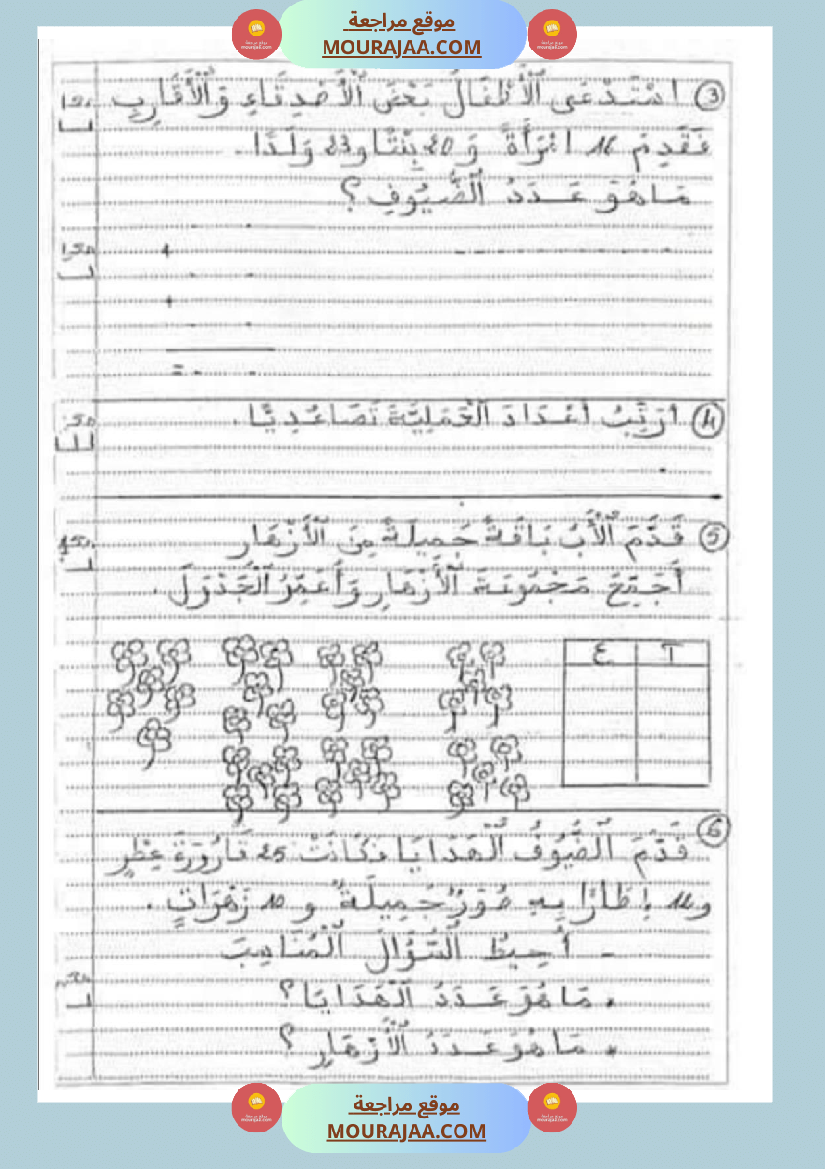 موقع مراجعة
MOURAJAA.COM
③ اسْتَدْعَى ٱلْأَطْفَالُ بَعْضَ ٱلْأَصْدِقَاءِ وَٱلْأَقَارِبِ
فَقَدِمَ 16 امْرَأَةً وَ 20 بِنْتًا و 23 وَلَدًا.
مَا هُوَ عَدَدُ ٱلضُّيُوفِ؟
+
+
=
④ أُرَتِّبُ أَعْدَادَ ٱلْعَمَلِيَّةِ تَصَاعُدِيًّا.
⑤ قَدَّمَ ٱلْأَبُ بَاقَةً جَمِيلَةً مِنَ ٱلْأَزْهَارِ
أُجَمِّعُ مَجْمُوعَةَ ٱلْأَزْهَارِ وَأُعَمِّرُ ٱلْجَدْوَلَ.
ع
⑥ قَدَّمَ ٱلضُّيُوفُ ٱلْهَدَايَا فَكَانَتْ 25 قَارُورَةَ عِطْرٍ
و إِطَارًا بِهِ صُوَرٌ جَمِيلَةٌ و 10 زَهَرَاتٍ.
- أُحِيطُ ٱلسُّؤَالَ ٱلْمُنَاسِبَ
• مَا هُوَ عَدَدُ ٱلْهَدَايَا؟
• مَا هُوَ عَدَدُ ٱلْأَزْهَارِ؟
موقع مراجعة
MOURAJAA.COM